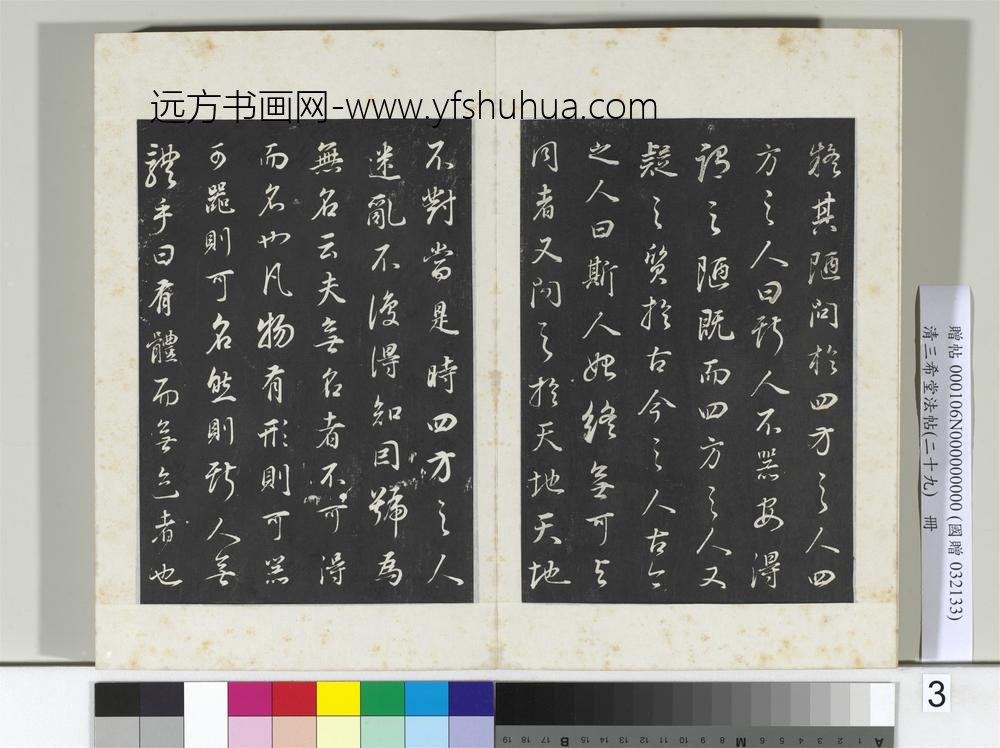 远方书画网-www.yfshuhua.com
疑其陋問於四方之人四
方之人曰斯人不器安得
謂之陋既而四方之人又
疑之質於古今之人古今
之人曰斯人始終無可與
同者又問之於天地天地
不對當是時四方之人
迷亂不復得知因號為
無名云夫無名者不可得
而名也凡物有形則可器
可器則可名然則斯人無
體乎曰有體而無迹者也
贈帖 000106N000000000 (國贈 032133)
清三希堂法帖(二十九) 冊
3
19 18 17 16 15 14 13 12 11 10 9 8 7 6 5 4 3 2 1
B M A